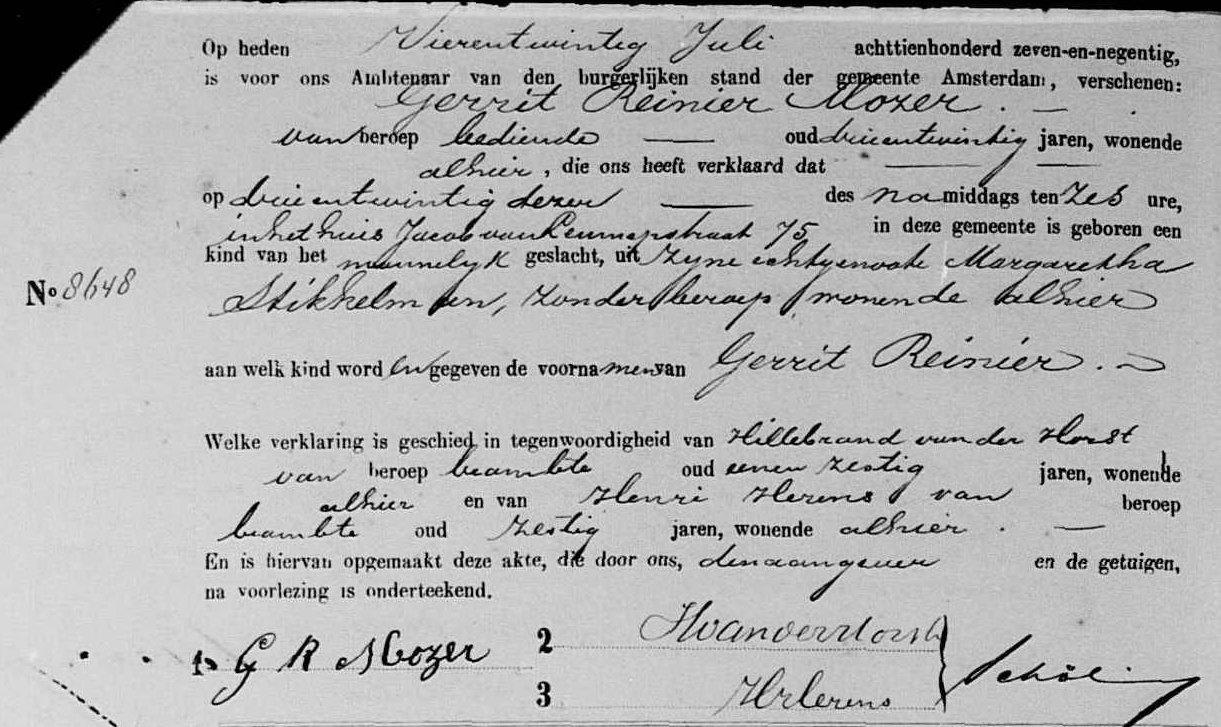 Op heden Vierentwintig Juli achttienhonderd zeven-en-negentig,
is voor ons Ambtenaar van den burgerlijken stand der gemeente Amsterdam, verschenen:
Gerrit Reinier Mozer. —
van beroep bediende — oud drieentwintig jaren, wonende
alhier, die ons heeft verklaard dat — —
op drieentwintig dezer — des namiddags ten zes ure,
in het huis Jacob van Lennepstraat 75 in deze gemeente is geboren een
kind van het mannelyk geslacht, uit zyne echtgenoote Margaretha
Stikkelm en, zonder beroep, wonende alhier
No 8648
aan welk kind word en gegeven de voornamen van Gerrit Reinier. —
Welke verklaring is geschied in tegenwoordigheid van Hillebrand van der Horst
van beroep beambte oud eenen zestig jaren, wonende
alhier en van Henri Herens van beroep
beambte oud zestig jaren, wonende alhier. —
En is hiervan opgemaakt deze akte, die door ons, den aangever en de getuigen,
na voorlezing is onderteekend.
1 G R Mozer 2 HvanderHorst
3 HHerens